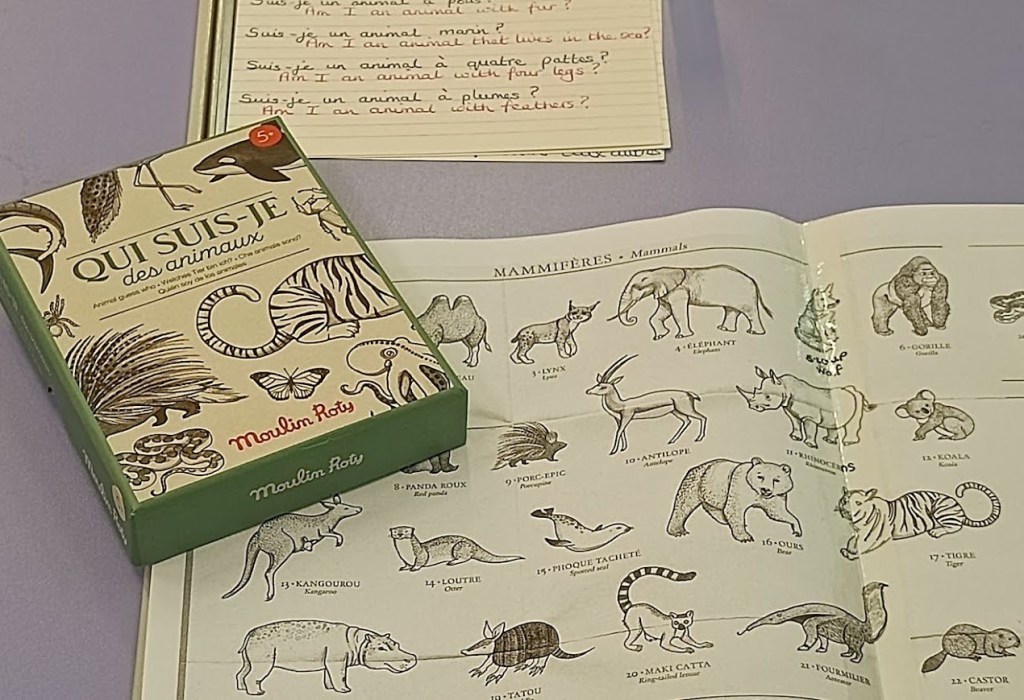 Suis-je un animal à poils?
Am I an animal with fur?
Suis-je un animal marin?
Am I an animal that lives in the sea?
Suis-je un animal à quatre pattes?
Am I an animal with four legs?
Suis-je un animal à plumes?
Am I an animal with feathers?
5+
QUI SUIS-JE
des animaux
Animal guess who • Welches Tier bin ich? • Che animale sono?
Quién soy de los animales
Moulin Roty
Moulin Roty
MAMMIFÈRES • Mammals
3 • LYNX
Lynx
4 • ÉLÉPHANT
Elephant
loup
Wolf
6 • GORILLE
Gorilla
8 • PANDA ROUX
Red panda
9 • PORC-EPIC
Porcupine
10 • ANTILOPE
Antelope
11 • RHINOCÉROS
12 • KOALA
Koala
13 • KANGOUROU
Kangaroo
14 • LOUTRE
Otter
15 • PHOQUE TACHETÉ
Spotted seal
16 • OURS
Bear
17 • TIGRE
Tiger
19 • TATOU
20 • MAKI CATTA
Ring-tailed lemur
21 • FOURMILIER
Anteater
22 • CASTOR
Beaver